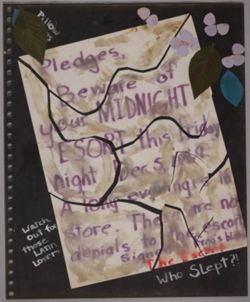 Pledges,
Beware of
your MIDNIGHT
ESORT this Friday
night Dec 5,
A long evening is in
store. There are no
denials to
Signed
The Escort
Watch
out for
those
Latin
Lovers
Who Slept?!